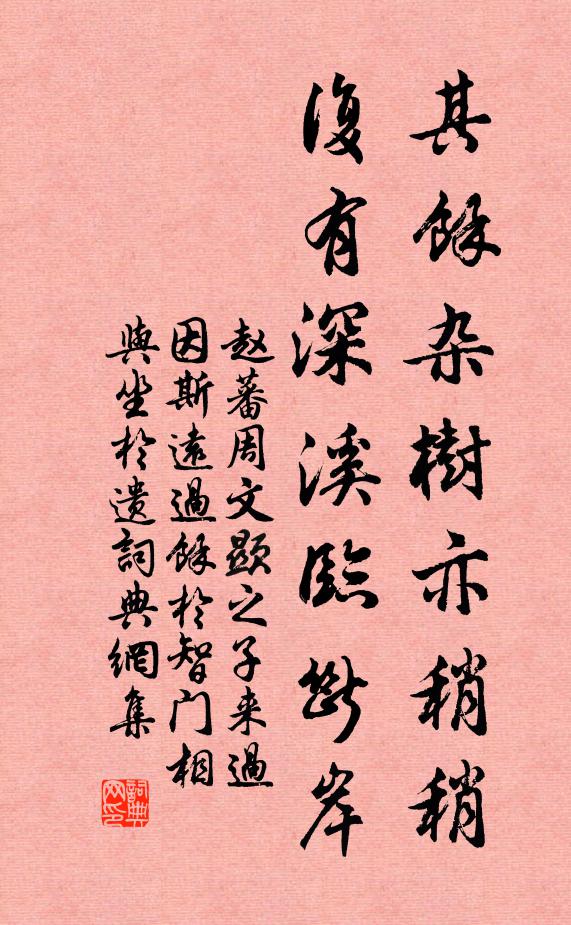 其餘杂樹亦稍稍
復有深溪臨斷岸
赵蕃周文显之子来過
因斯遠過餘於智门相
與坐於遗詞典網集
詞典
网印